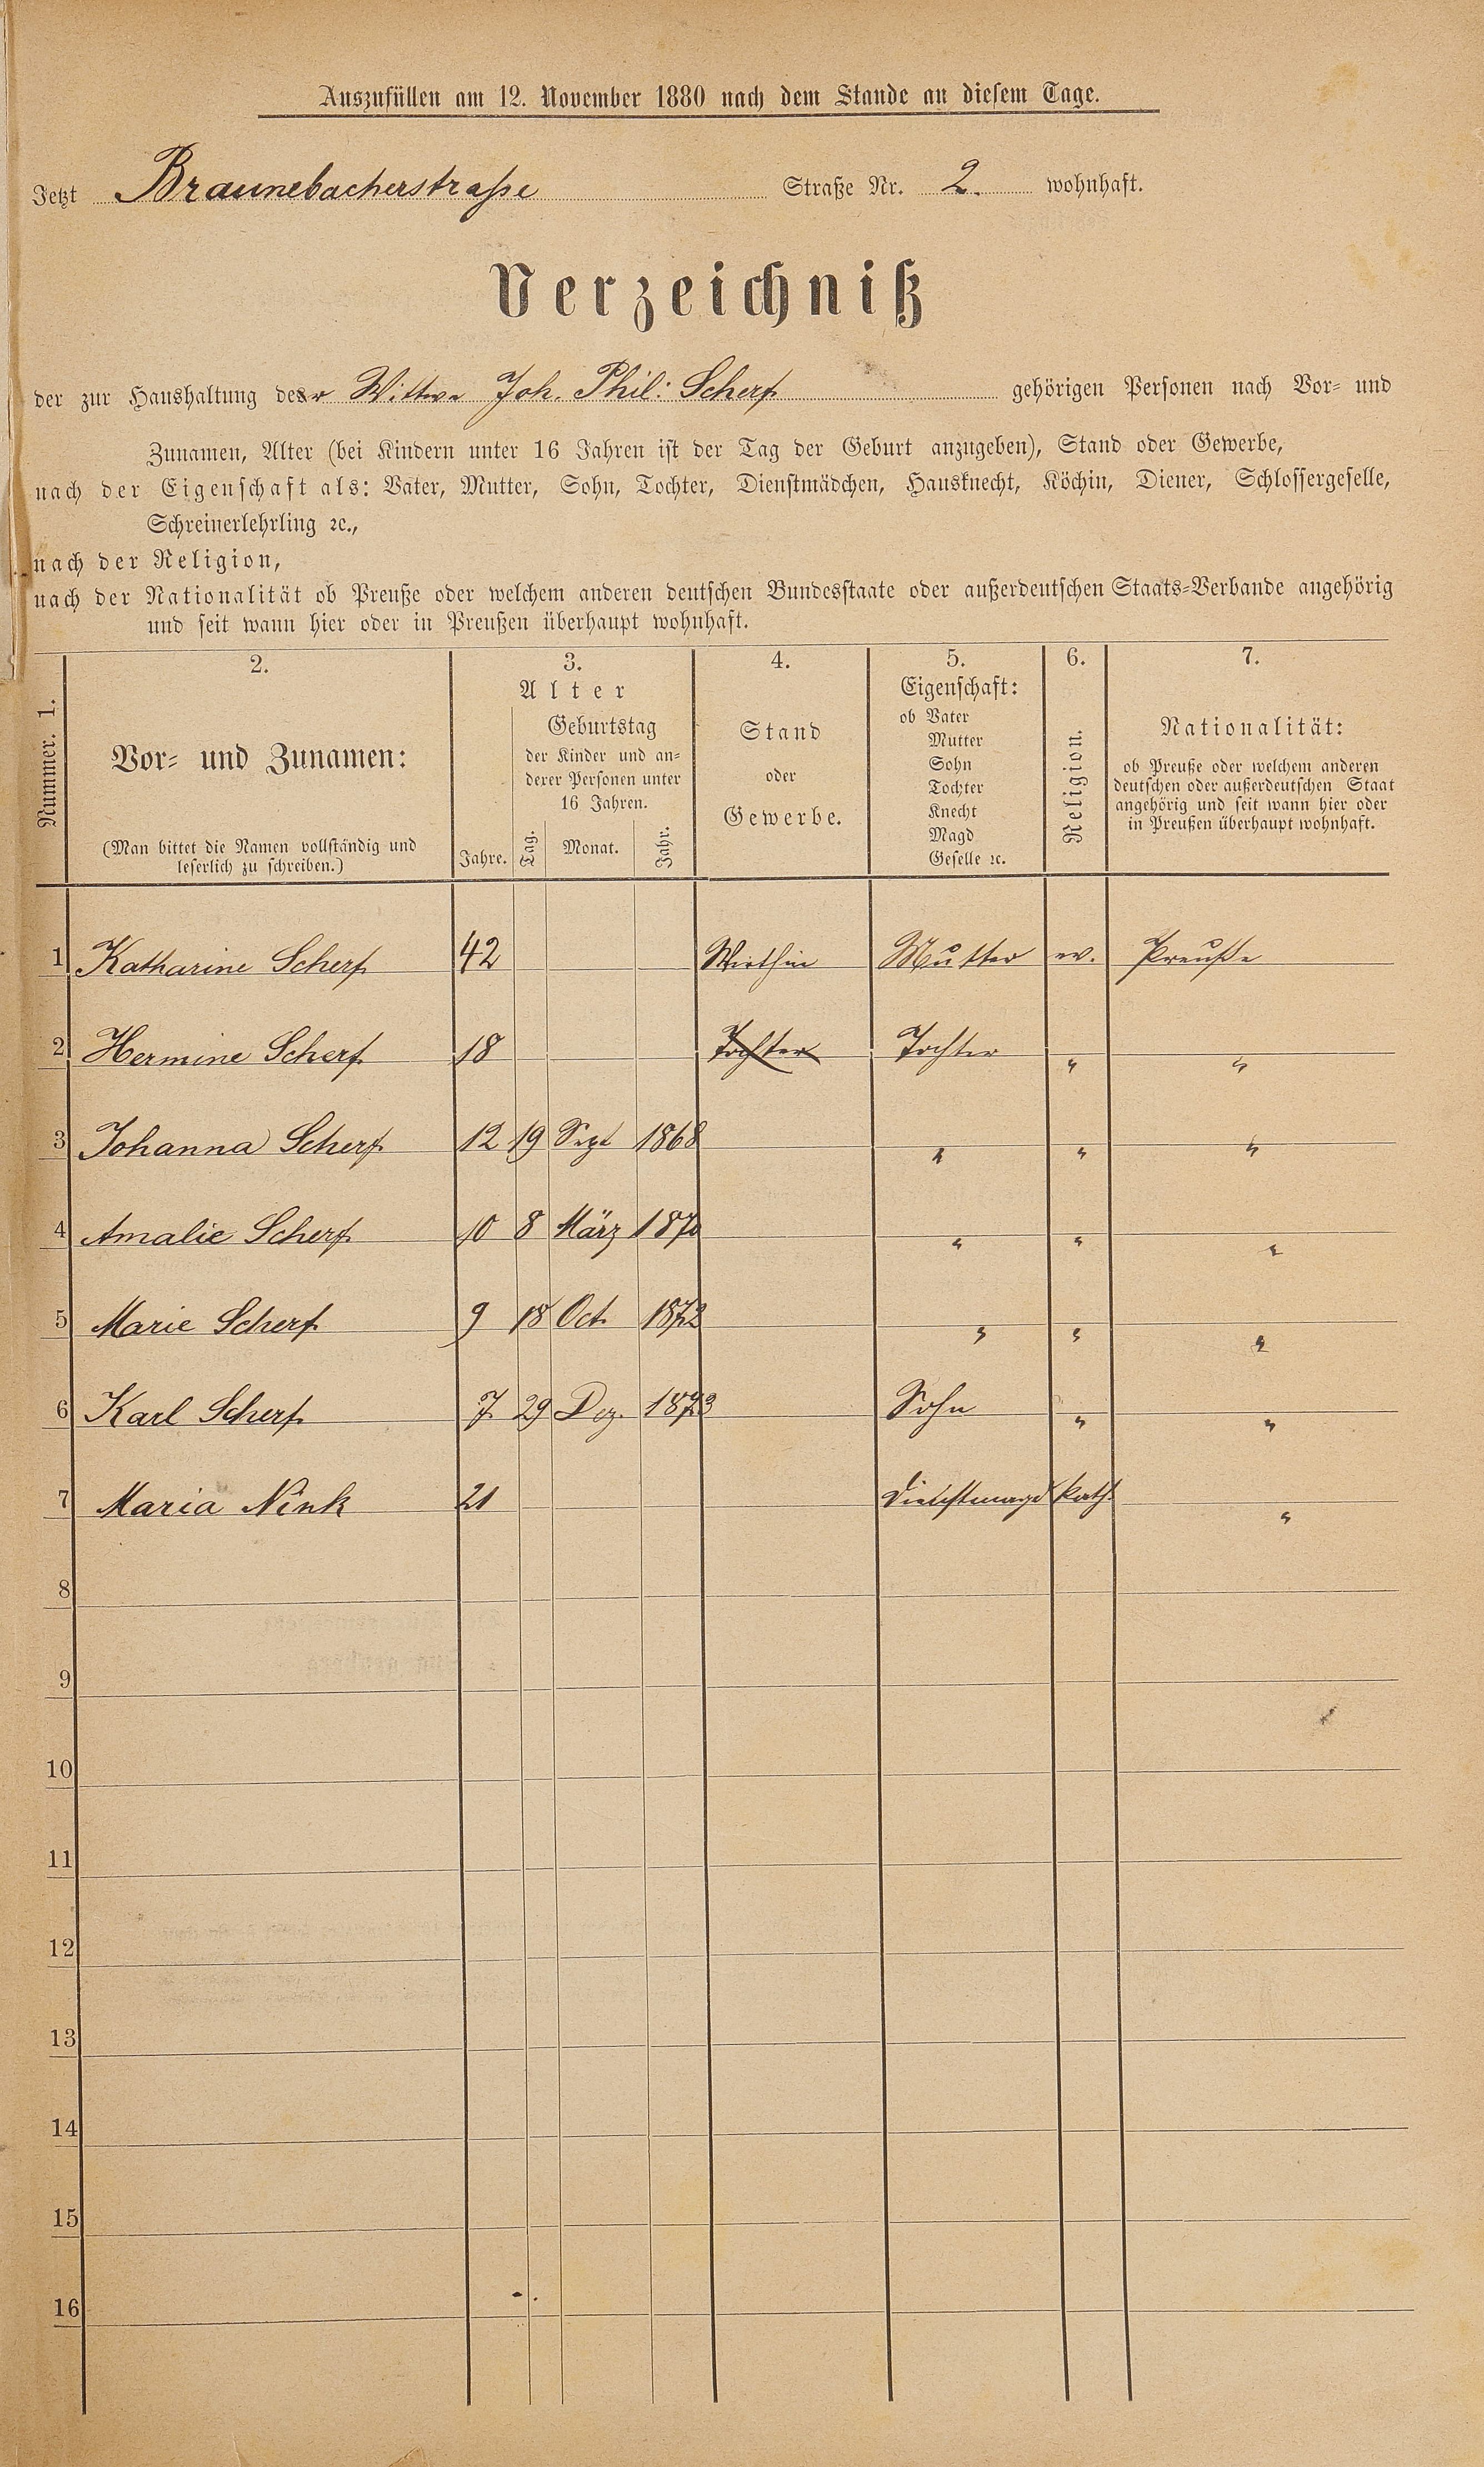 Auszufüllen am 12. November 1880 nach dem Stande an diesem Tage.
Jetzt Braunebacherstraße Straße Nr. 2. wohnhaft.
Verzeichniß
der zur Haushaltung der Wittwe Joh. Phil: Scherf gehörigen Personen nach Vor- und
Zunamen, Alter (bei Kindern unter 16 Jahren ist der Tag der Geburt anzugeben), Stand oder Gewerbe,
nach der Eigenschaft als: Vater, Mutter, Sohn, Tochter, Dienstmädchen, Hausknecht, Köchin, Diener, Schlossergeselle,
Schreinerlehrling ꝛc.,
nach der Religion,
nach der Nationalität ob Preuße oder welchem anderen deutschen Bundesstaate oder außerdeutschen Staats-Verbande angehörig
und seit wann hier oder in Preußen überhaupt wohnhaft.
Nummer. 1.
2.
Vor- und Zunamen:
(Man bittet die Namen vollständig und
leserlich zu schreiben.)
3.
Alter
Jahre.
Geburtstag
der Kinder und an-
derer Personen unter
16 Jahren.
Tag. Monat. Jahr.
4.
Stand
oder
Gewerbe.
5.
Eigenschaft:
ob Vater
Mutter
Sohn
Tochter
Knecht
Magd
Geselle ꝛc.
6.
Religion.
7.
Nationalität:
ob Preuße oder welchem anderen
deutschen oder außerdeutschen Staat
angehörig und seit wann hier oder
in Preußen überhaupt wohnhaft.
1 Katharine Scherf 42 Wirthin Mutter ev. Preuße
2 Hermine Scherf 18 Tochter Tochter " "
3 Johanna Scherf 12 19 Sept 1868 " " "
4 Amalie Scherf 10 8 März 1870 " " "
5 Marie Scherf 9 18 Oct. 1872 " " "
6 Karl Scherf 7 29 Dez. 1873 Sohn " "
7 Maria Nink 21 Dienstmagd kath. "
8
9
10
11
12
13
14
15
16